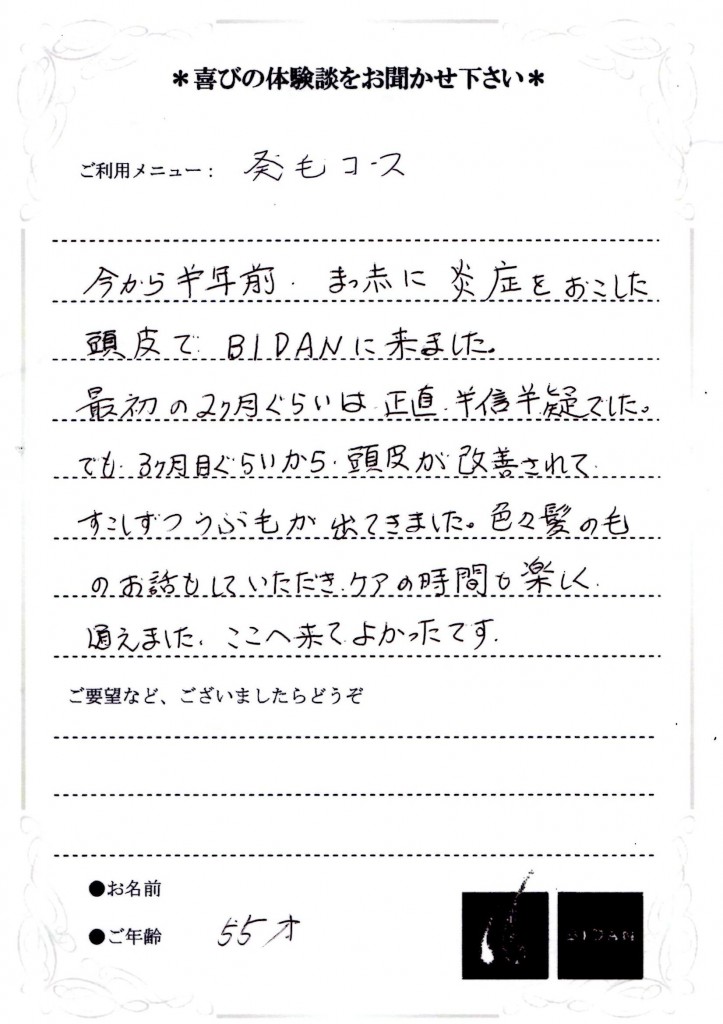 ＊喜びの体験談をお聞かせ下さい＊
ご利用メニュー： 発毛コース
今から半年前、まっ赤に炎症をおこした
頭皮で BIDANに来ました。
最初の2ヶ月ぐらいは、正直、半信半疑でした。
でも、3ヶ月目ぐらいから、頭皮が改善されて、
すこしずつうぶ毛が出てきました。色々髪の毛
のお話もしていただき、ケアの時間も楽しく、
通えました。ここへ来てよかったです。
ご要望など、ございましたらどうぞ
●お名前
●ご年齢 55才
BIDAN